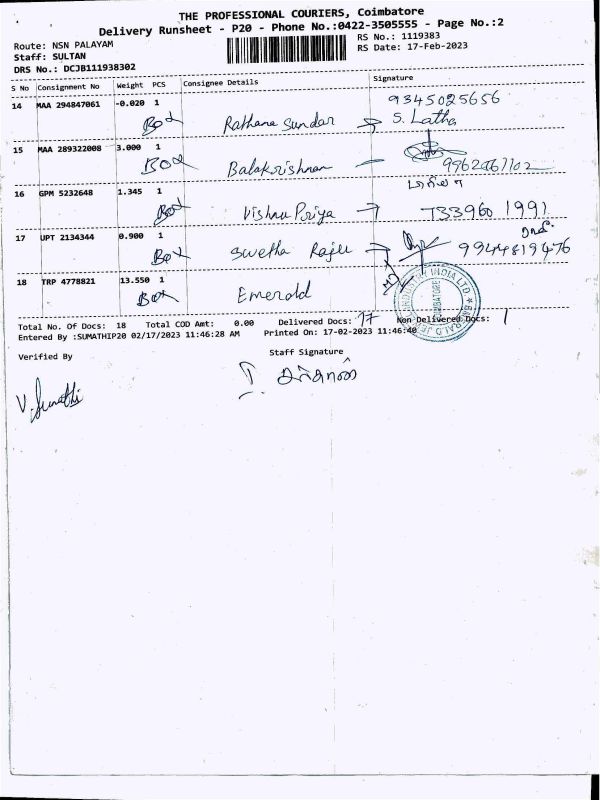 THE PROFESSIONAL COURIERS, Coimbatore
Delivery Runsheet - P20 - Phone No.:0422-3505555 - Page No.:2
Route: NSN PALAYAM
RS No.: 1119383
Staff: SULTAN
RS Date: 17-Feb-2023
DRS No.: DCJB111938302
S No Consignment No Weight PCS Consignee Details Signature
14 MAA 294847061 -0.020 1 9345025656
Box Rathana Sundar S. Latha
15 MAA 289322008 3.000 1
Box Balakrishnan 9962067102
16 GPM 5232648 1.345 1
Box Vishnu Priya 7339601991
17 UPT 2134344 0.900 1
Box Swetha Raju 9944819476
18 TRP 4778821 13.550 1
Box Emerald
Total No. Of Docs: 18 Total COD Amt: 0.00 Delivered Docs: 17 Non-Delivered Docs: 1
Entered By :SUMATHIP20 02/17/2023 11:46:28 AM Printed On: 17-02-2023 11:46:40
Verified By Staff Signature
V. Sumathi